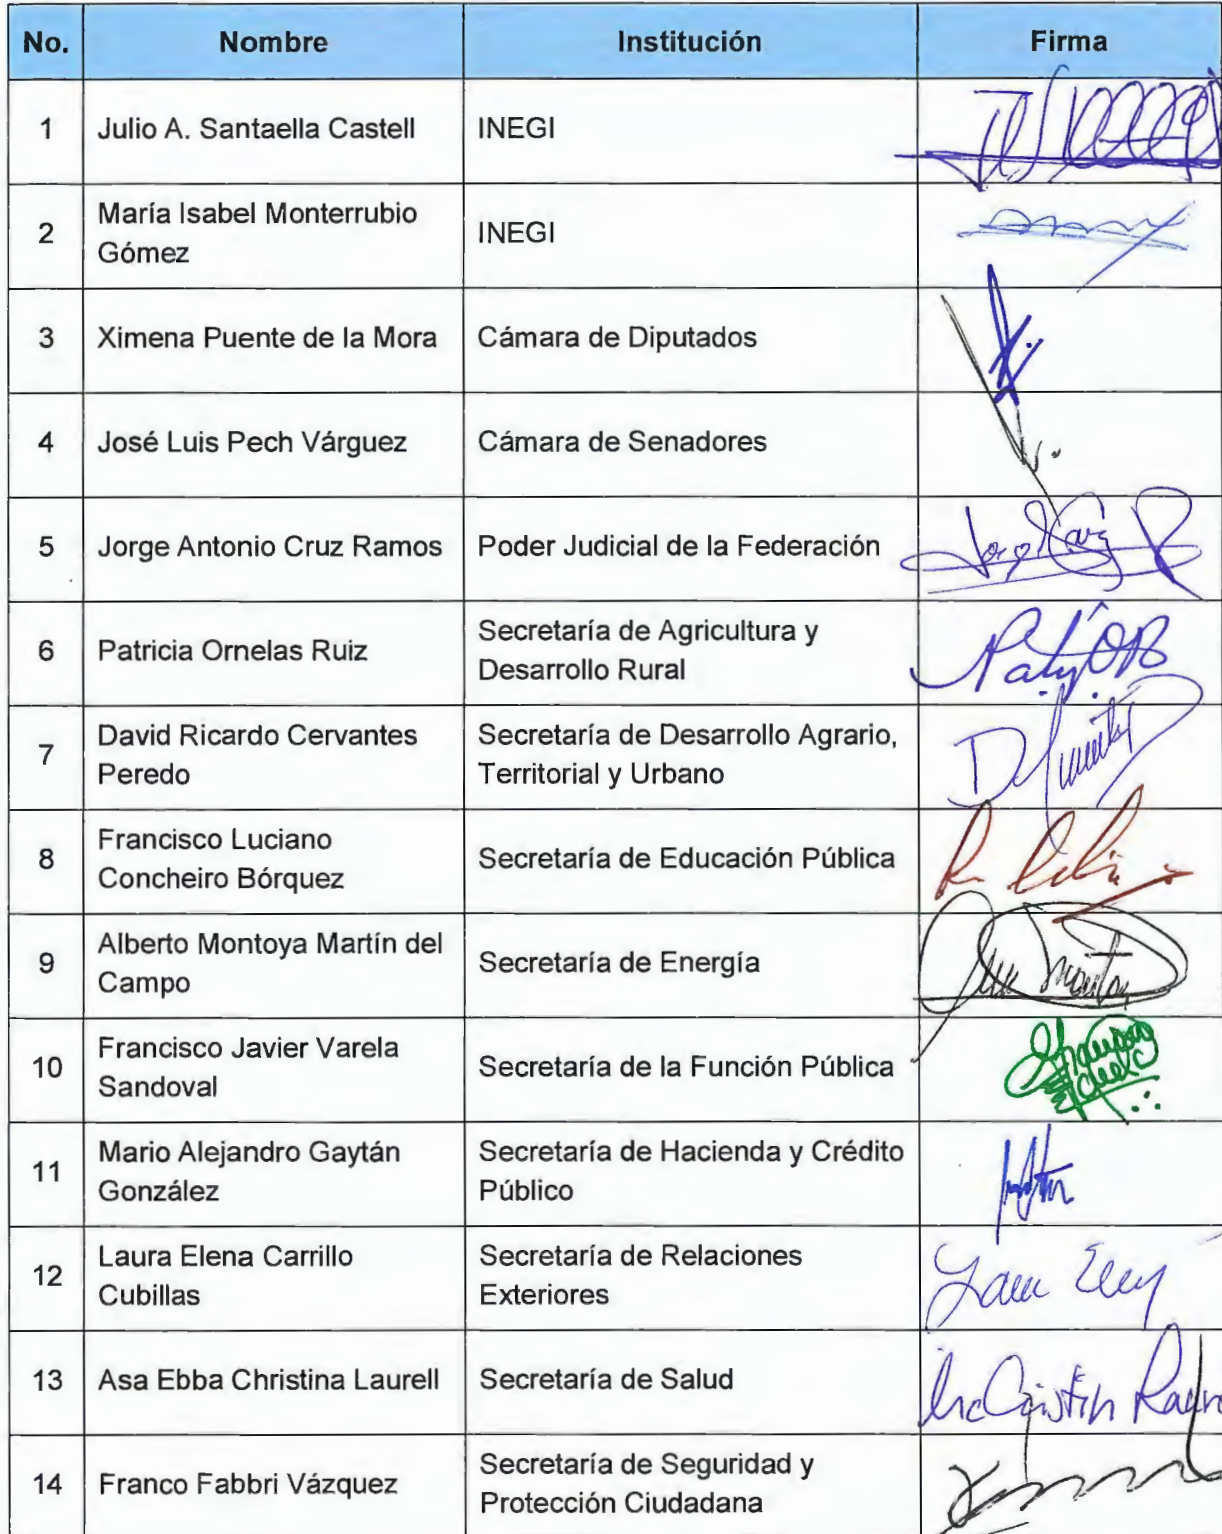 No. Nombre Institución Firma
1 Julio A. Santaella Castell INEGI
2 María Isabel Monterrubio
Gómez INEGI
3 Ximena Puente de la Mora Cámara de Diputados
4 José Luis Pech Várguez Cámara de Senadores
5 Jorge Antonio Cruz Ramos Poder Judicial de la Federación
6 Patricia Ornelas Ruiz Secretaría de Agricultura y
Desarrollo Rural
7 David Ricardo Cervantes
Peredo Secretaría de Desarrollo Agrario,
Territorial y Urbano
8 Francisco Luciano
Concheiro Bórquez Secretaría de Educación Pública
9 Alberto Montoya Martín del
Campo Secretaría de Energía
10 Francisco Javier Varela
Sandoval Secretaría de la Función Pública
11 Mario Alejandro Gaytán
González Secretaría de Hacienda y Crédito
Público
12 Laura Elena Carrillo
Cubillas Secretaría de Relaciones
Exteriores
13 Asa Ebba Christina Laurell Secretaría de Salud
14 Franco Fabbri Vázquez Secretaría de Seguridad y
Protección Ciudadana